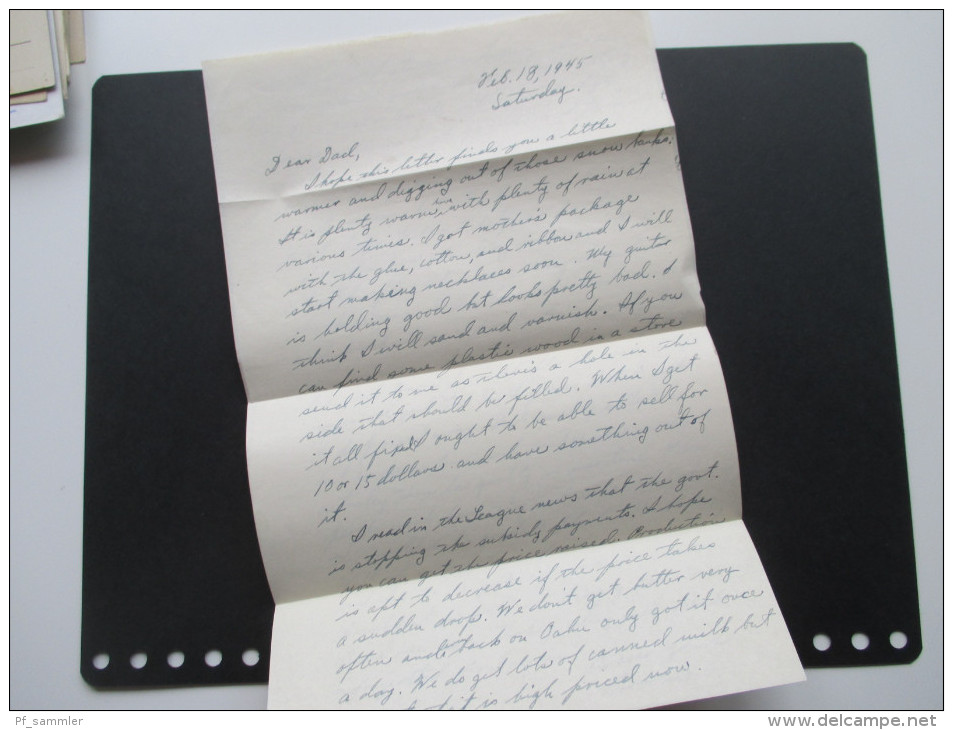 Feb. 18, 1945
Saturday.
Dear Dad,
I hope this letter finds you a little
warmer and digging out of those snow banks.
It is plenty warm with plenty of rain at
various times. I got mothers package
with the glue, cotton, and ribbon and I will
start making necklaces soon. My guitar
is holding good but looks pretty bad. I
think I will sand and varnish. If you
can find some plastic wood in a store
send it to me as theris a hole in the
side that should be filled. When I get
it all fixed I ought to be able to sell for
10 or 15 dollars and have something out of
it.
I read in the League news that the govt.
is stopping the subsidy payments. I hope
you can get the price raised. Production
is apt to decrease if the price takes
a sudden drop. We don't get butter very
often and back on Oahu only got it once
a day. We do get lots of canned milk but
it is high priced now.
Pf_sammler
www.delcampe.net